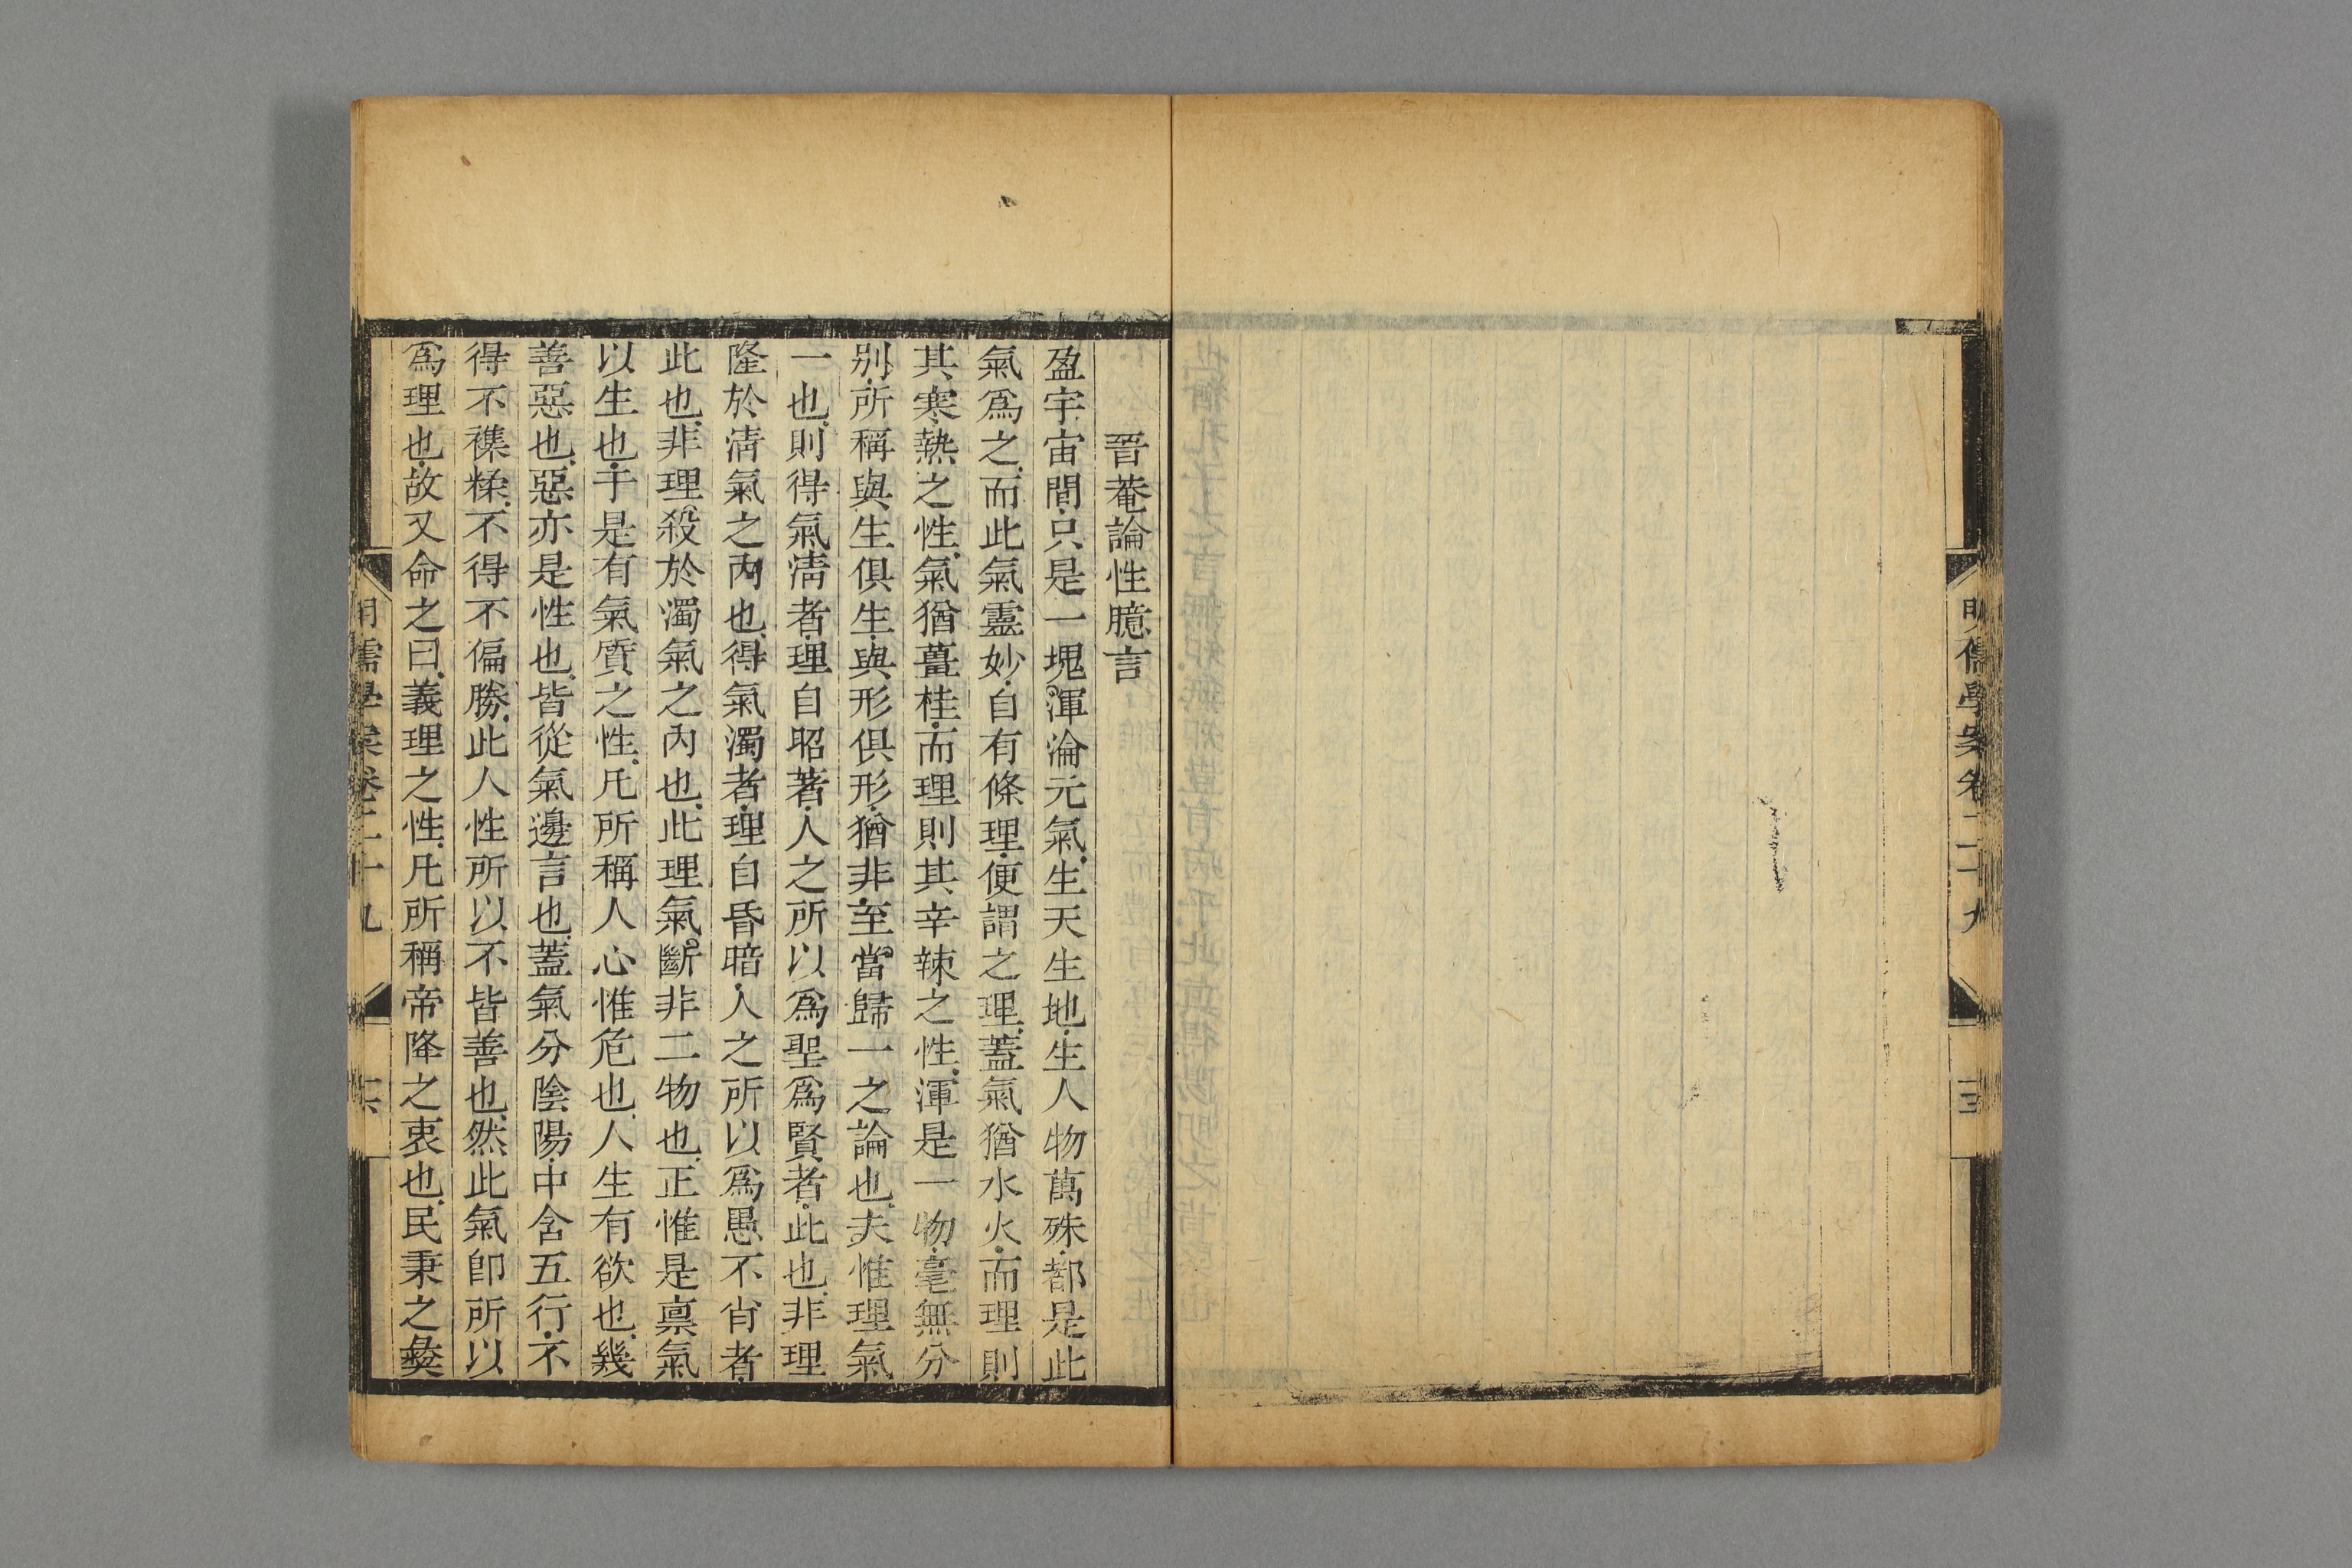 晉菴論性臆言
盈宇宙間只是一塊渾淪元氣生天生地生人物萬殊都是此
氣爲之而此氣靈妙自有條理便謂之理蓋氣猶水火而理則
其寒熱之性氣猶薑桂而理則其辛辣之性渾是一物毫無分
別所稱與生俱生與形俱形猶非至當歸一之論也夫惟理氣
一也則得氣清者理自昭著人之所以爲聖爲賢者此也非理
隆於清氣之內也得氣濁者理自昏暗人之所以爲愚不肖者
此也非理殺於濁氣之內也此理氣斷非二物也正惟是稟氣
以生也于是有氣質之性凡所稱人心惟危也人生有欲也幾
善惡也惡亦是性也皆從氣邊言也蓋氣分陰陽中含五行不
得不襍糅不得不偏勝此人性所以不皆善也然此氣卽所以
爲理也故又命之曰義理之性凡所稱帝降之衷也民秉之彝